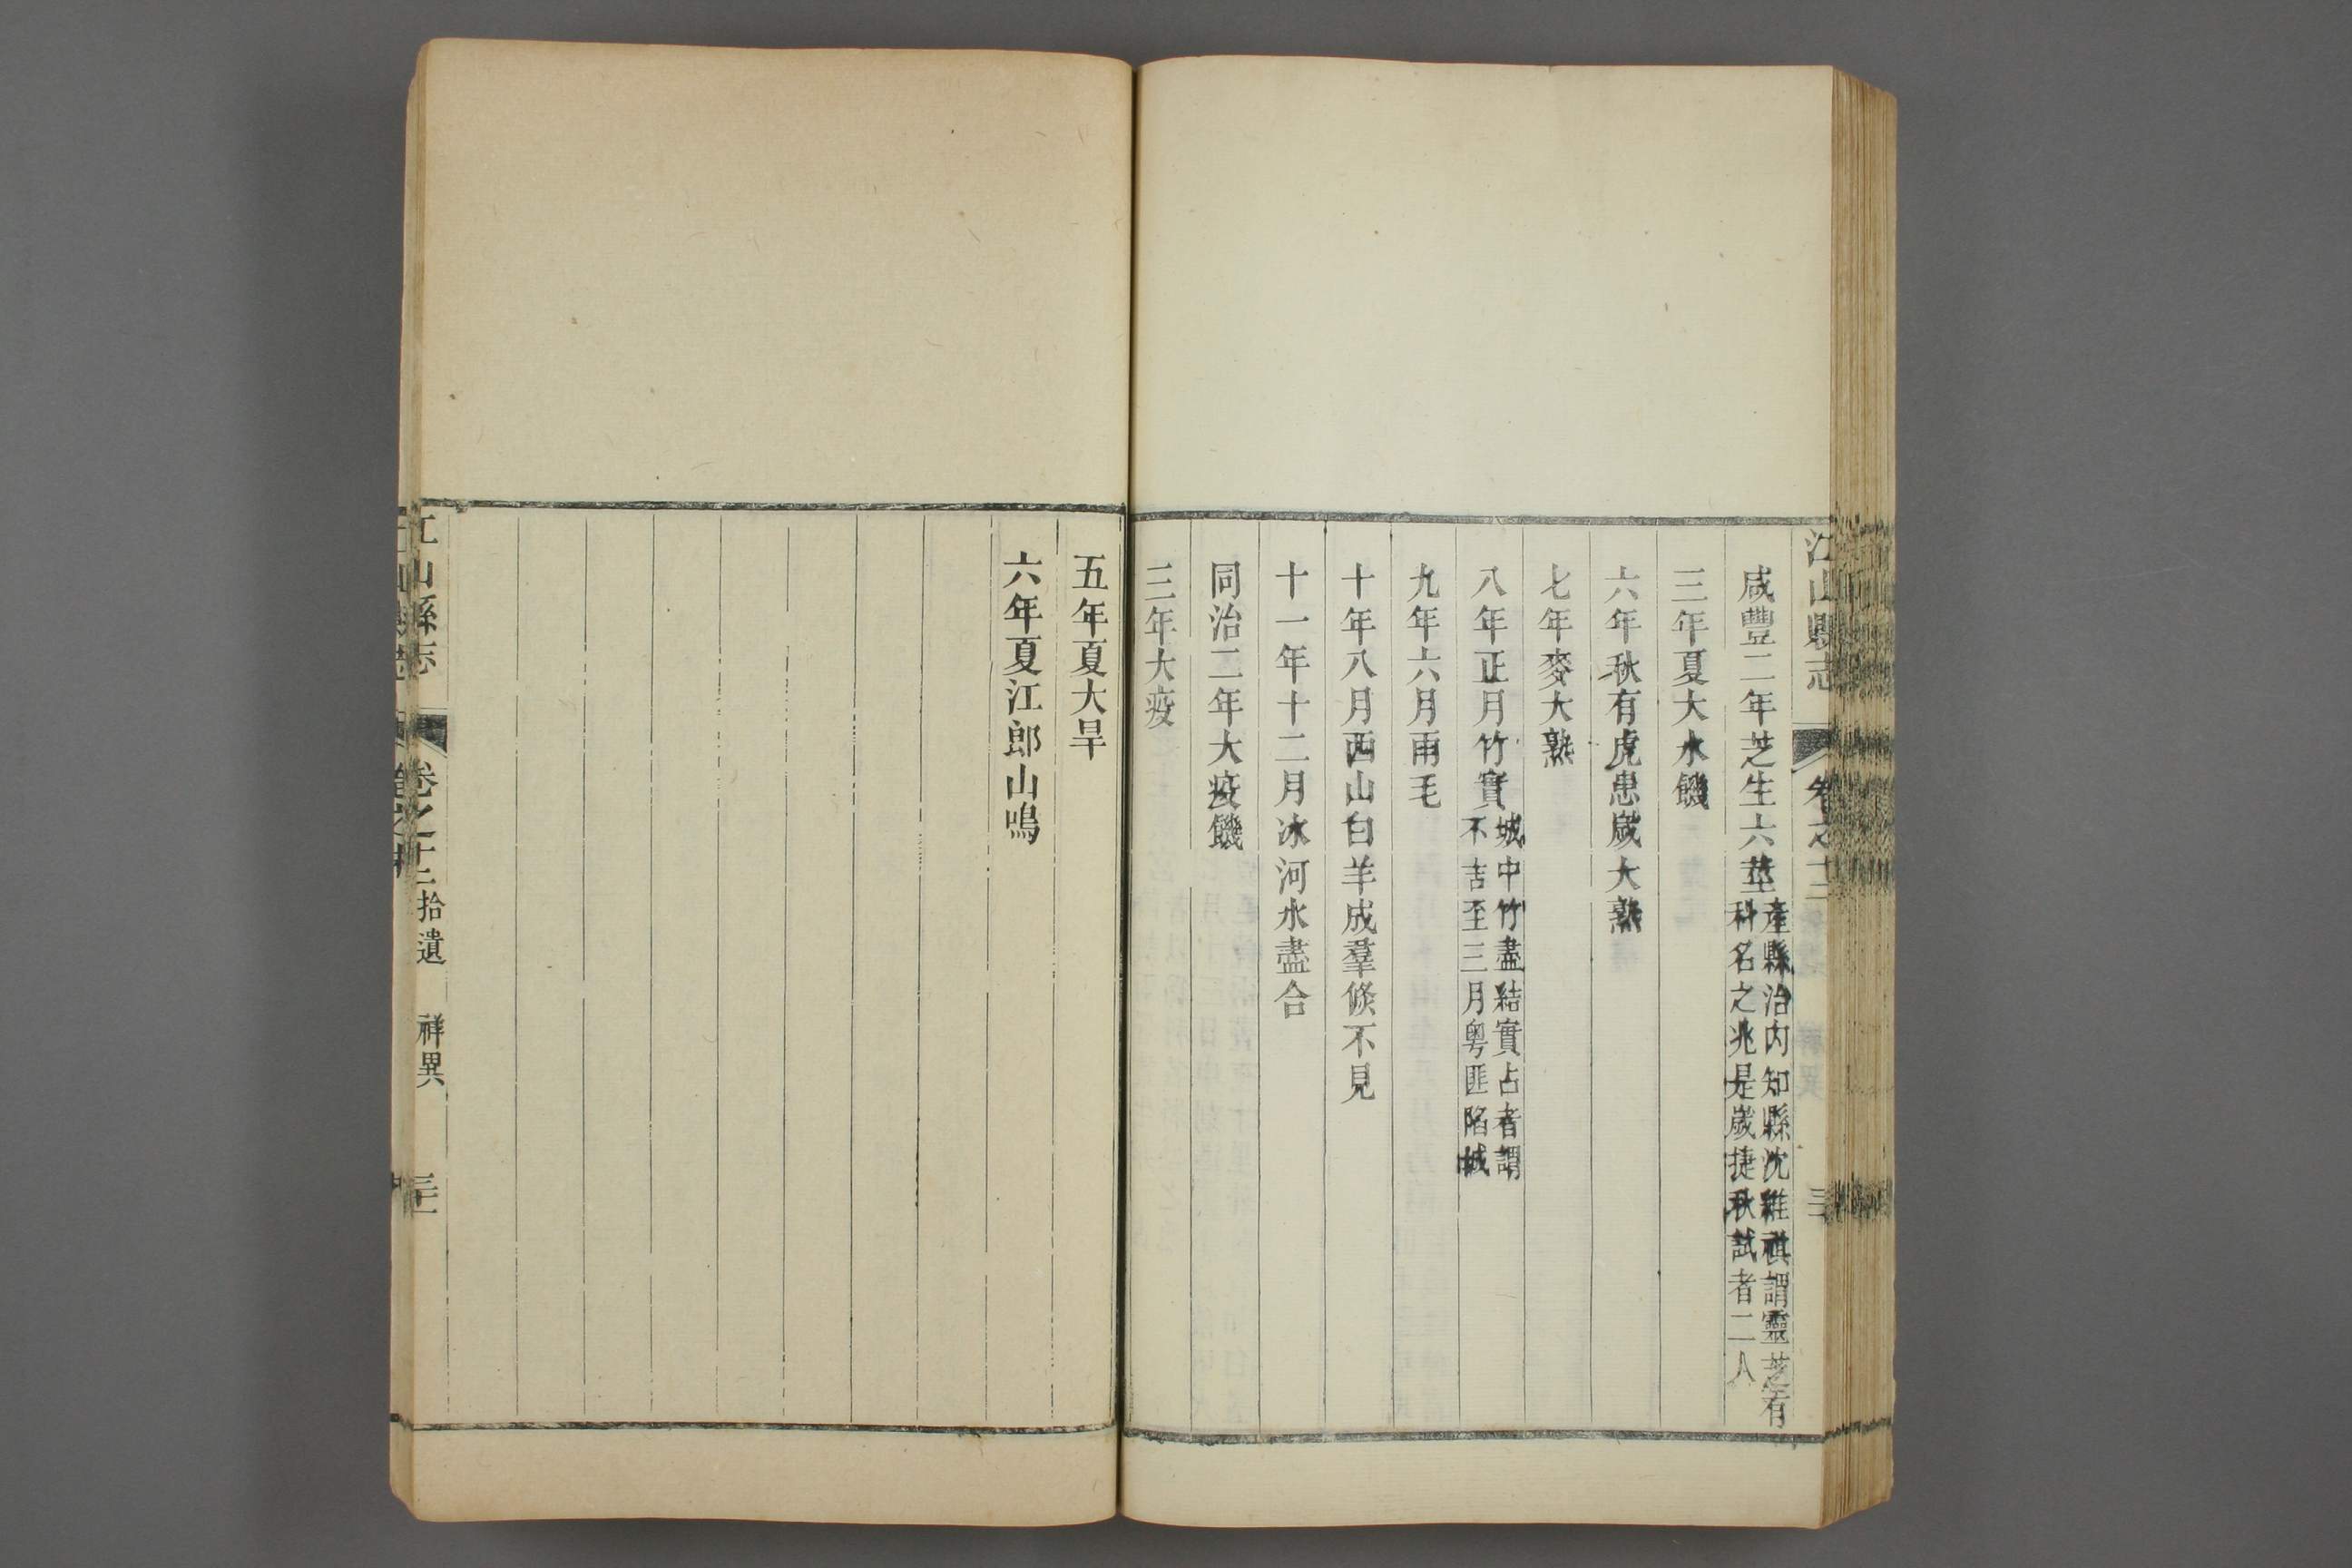 江山縣志 卷之十二
咸豐二年芝生六莖產縣治内知縣沈維祺謂靈芝有
科名之兆是歲捷秋試者二人
三年夏大水饑
六年秋有虎患歲大熟
七年麥大熟
八年正月竹實城中竹盡結實占者謂
不吉至三月粵匪陷城
九年六月雨毛
十年八月西山白羊成羣倐不見
十一年十二月冰河水盡合
同治二年大疫饑
三年大疫
五年夏大旱
六年夏江郎山鳴
江山縣志 卷之十二拾遺 祥異